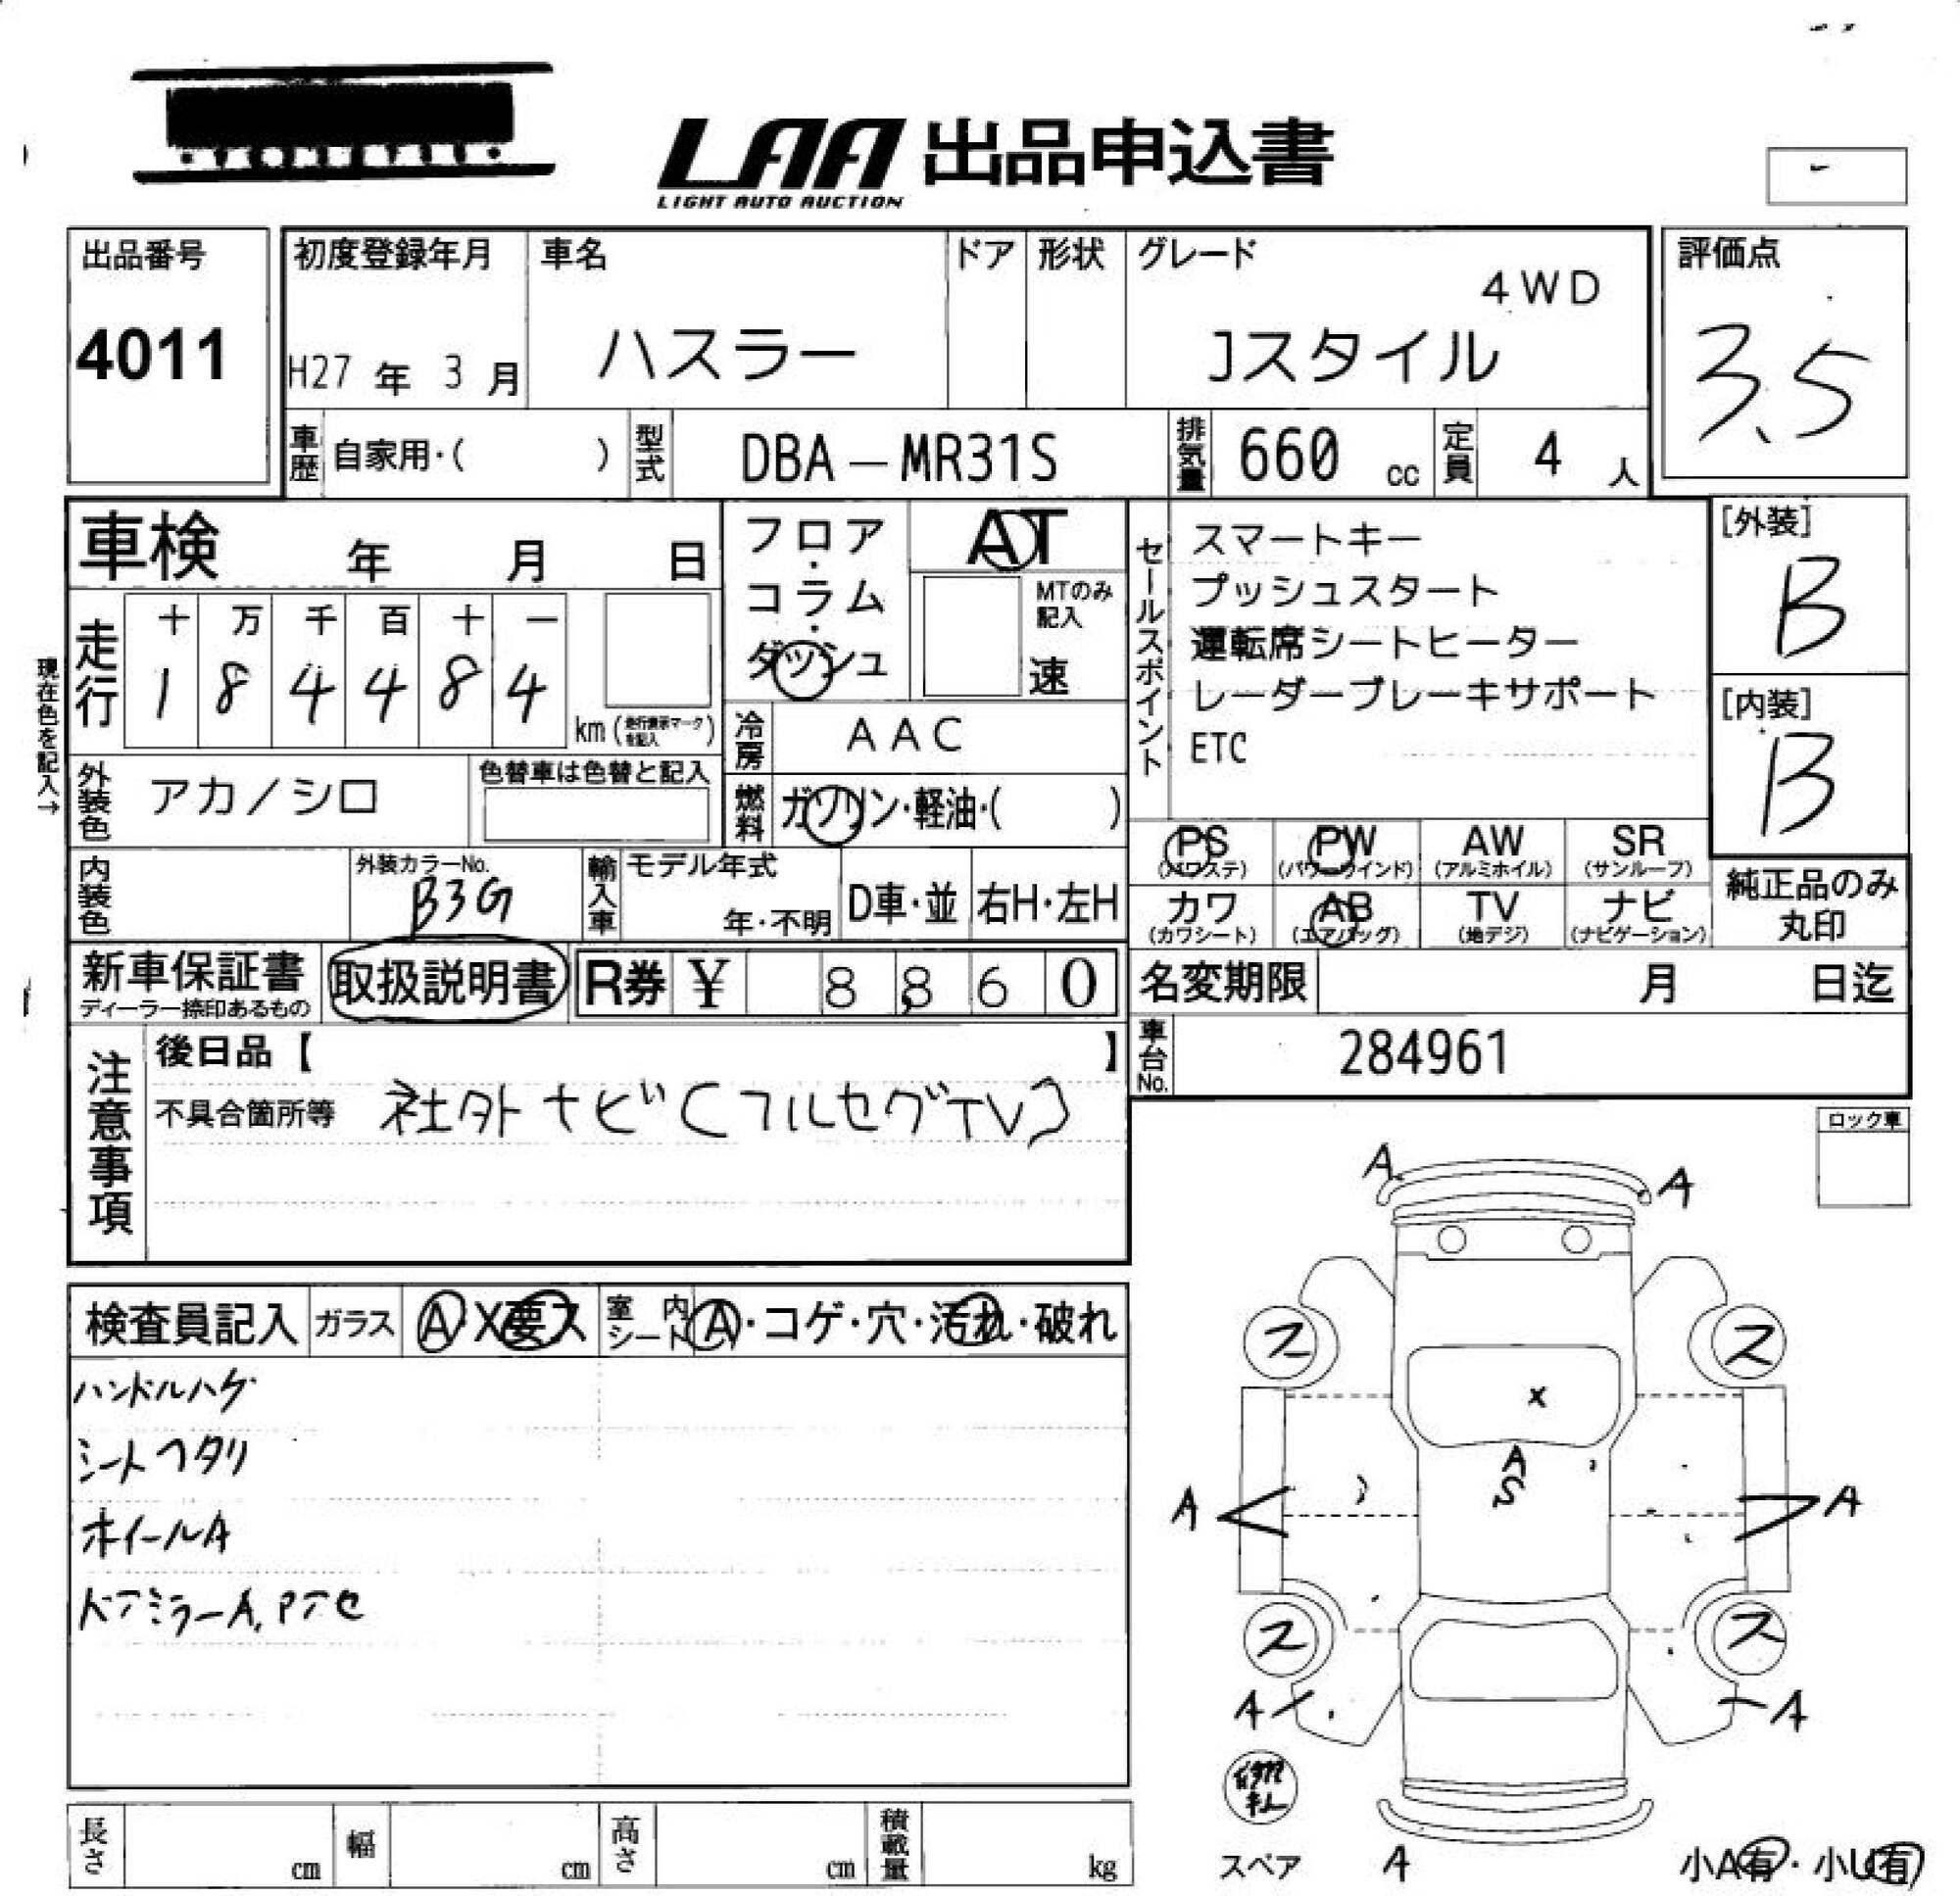 LAA 出品申込書
LIGHT AUTO AUCTION
出品番号
4011
初度登録年月
H27 年 3 月
車名
ハスラー
ドア
形状
グレード
4WD
Jスタイル
評価点
3.5
車歴 自家用・( )
型式 DBA-MR31S
排気量 660 cc
定員 4 人
車検 年 月 日
フロア・コラム・ダッシュ
AT
MTのみ記入
速
セールスポイント
スマートキー
プッシュスタート
運転席シートヒーター
レーダーブレーキサポート
ETC
[外装]
B
[内装]
B
現在色を記入→
走行
十 万 千 百 十 一
1 8 4 4 8 4
km (走行表示マークを記入)
冷房 AAC
外装色 アカ/シロ
色替車は色替と記入
燃料 ガソリン・軽油・( )
PS (パワステ)
PW (パワーウインド)
AW (アルミホイル)
SR (サンルーフ)
カワ (カワシート)
AB (エアバッグ)
TV (地デジ)
ナビ (ナビゲーション)
純正品のみ
丸印
内装色
外装カラーNo.
B3G
輸入車
モデル年式
年・不明
D車・並
右H・左H
新車保証書
ディーラー捺印あるもの
取扱説明書
R券 ¥ 8,860
名変期限 月 日迄
車台No. 284961
注意事項
後日品【 】
不具合箇所等 社外ナビ(フルセグTV)
ロック車
検査員記入
ガラス A X 要ス
室内シート A・コゲ・穴・汚れ・破れ
ハンドルハゲ
シートヘタリ
ホイールA
ドアミラーA,
A A
ス ス
X
A
S
A A
ス ス
A A
スペア
A
小A有・小U有
長さ cm
幅 cm
高さ cm
積載量 kg